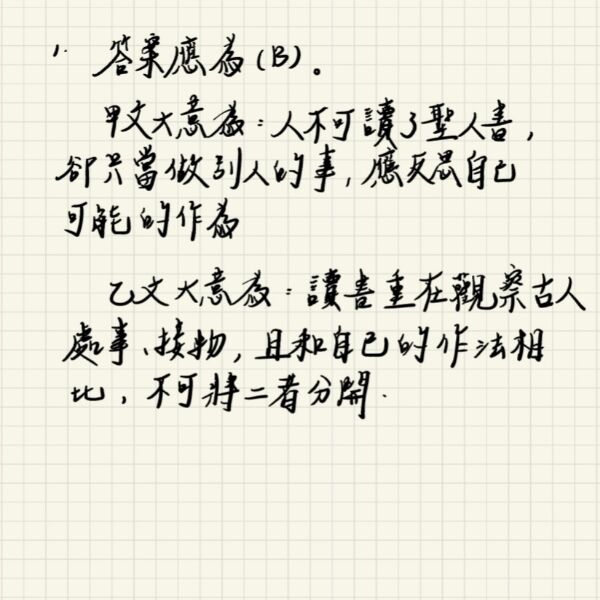 1. 答案應為(B)。
甲文大意為：人不可讀了聖人書，
卻只當做別人的事，應反思自己
可能的作為
乙文大意為：讀書重在觀察古人
處事、接物，且和自己的作法相
比，不可將二者分開.